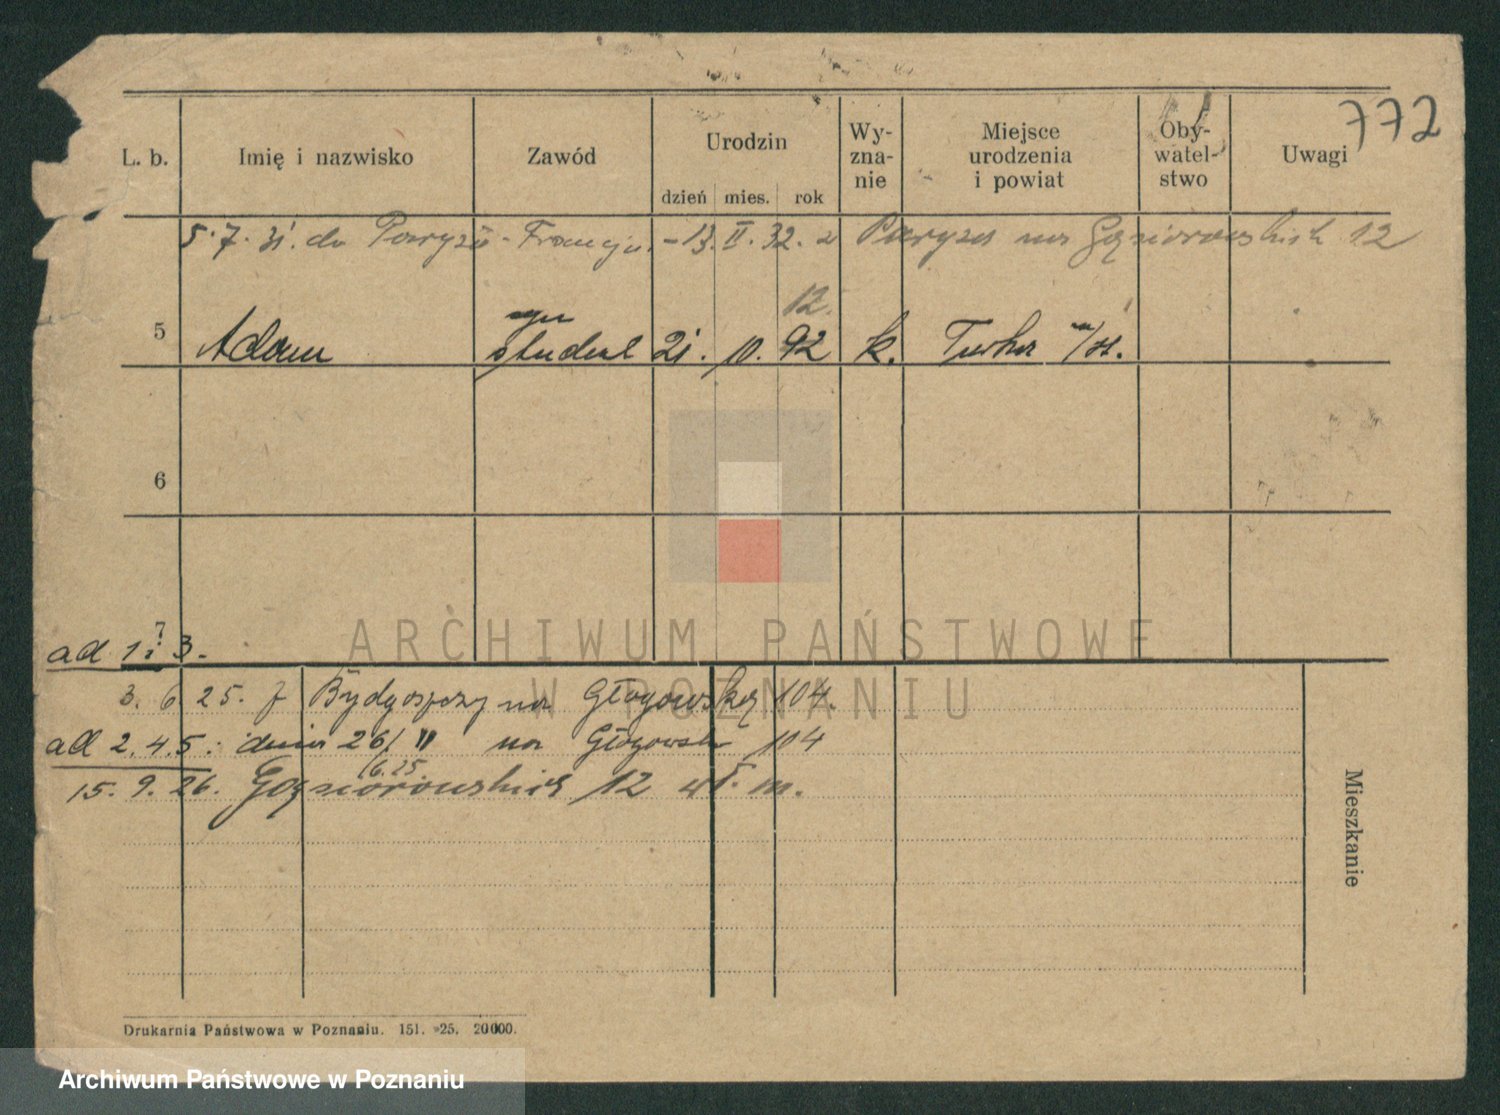 772
L. b. Imię i nazwisko Zawód Urodzin Wy-zna-nie Miejsce urodzenia i powiat Oby-watel-stwo Uwagi
dzień mies. rok
5.7.31. do Paryża - Francja. - 13. II. 32. z Paryża na Gąsiorowskich 12
12.
syn
5 Adam student 21. 10. 92 k. Turka n/St.
6
7
ad 1 i 3.
3. 6 25. z Bydgoszczy na Głogowską 104.
ad 2. 4. 5. dnia 26/ na Głogowska 104
6.25
15. 9. 26. Gąsiorowskich 12 wł. m.
Mieszkanie
Drukarnia Państwowa w Poznaniu. 151. -25. 20000.
ARCHIWUM PAŃSTWOWE
W POZNANIU
Archiwum Państwowe w Poznaniu